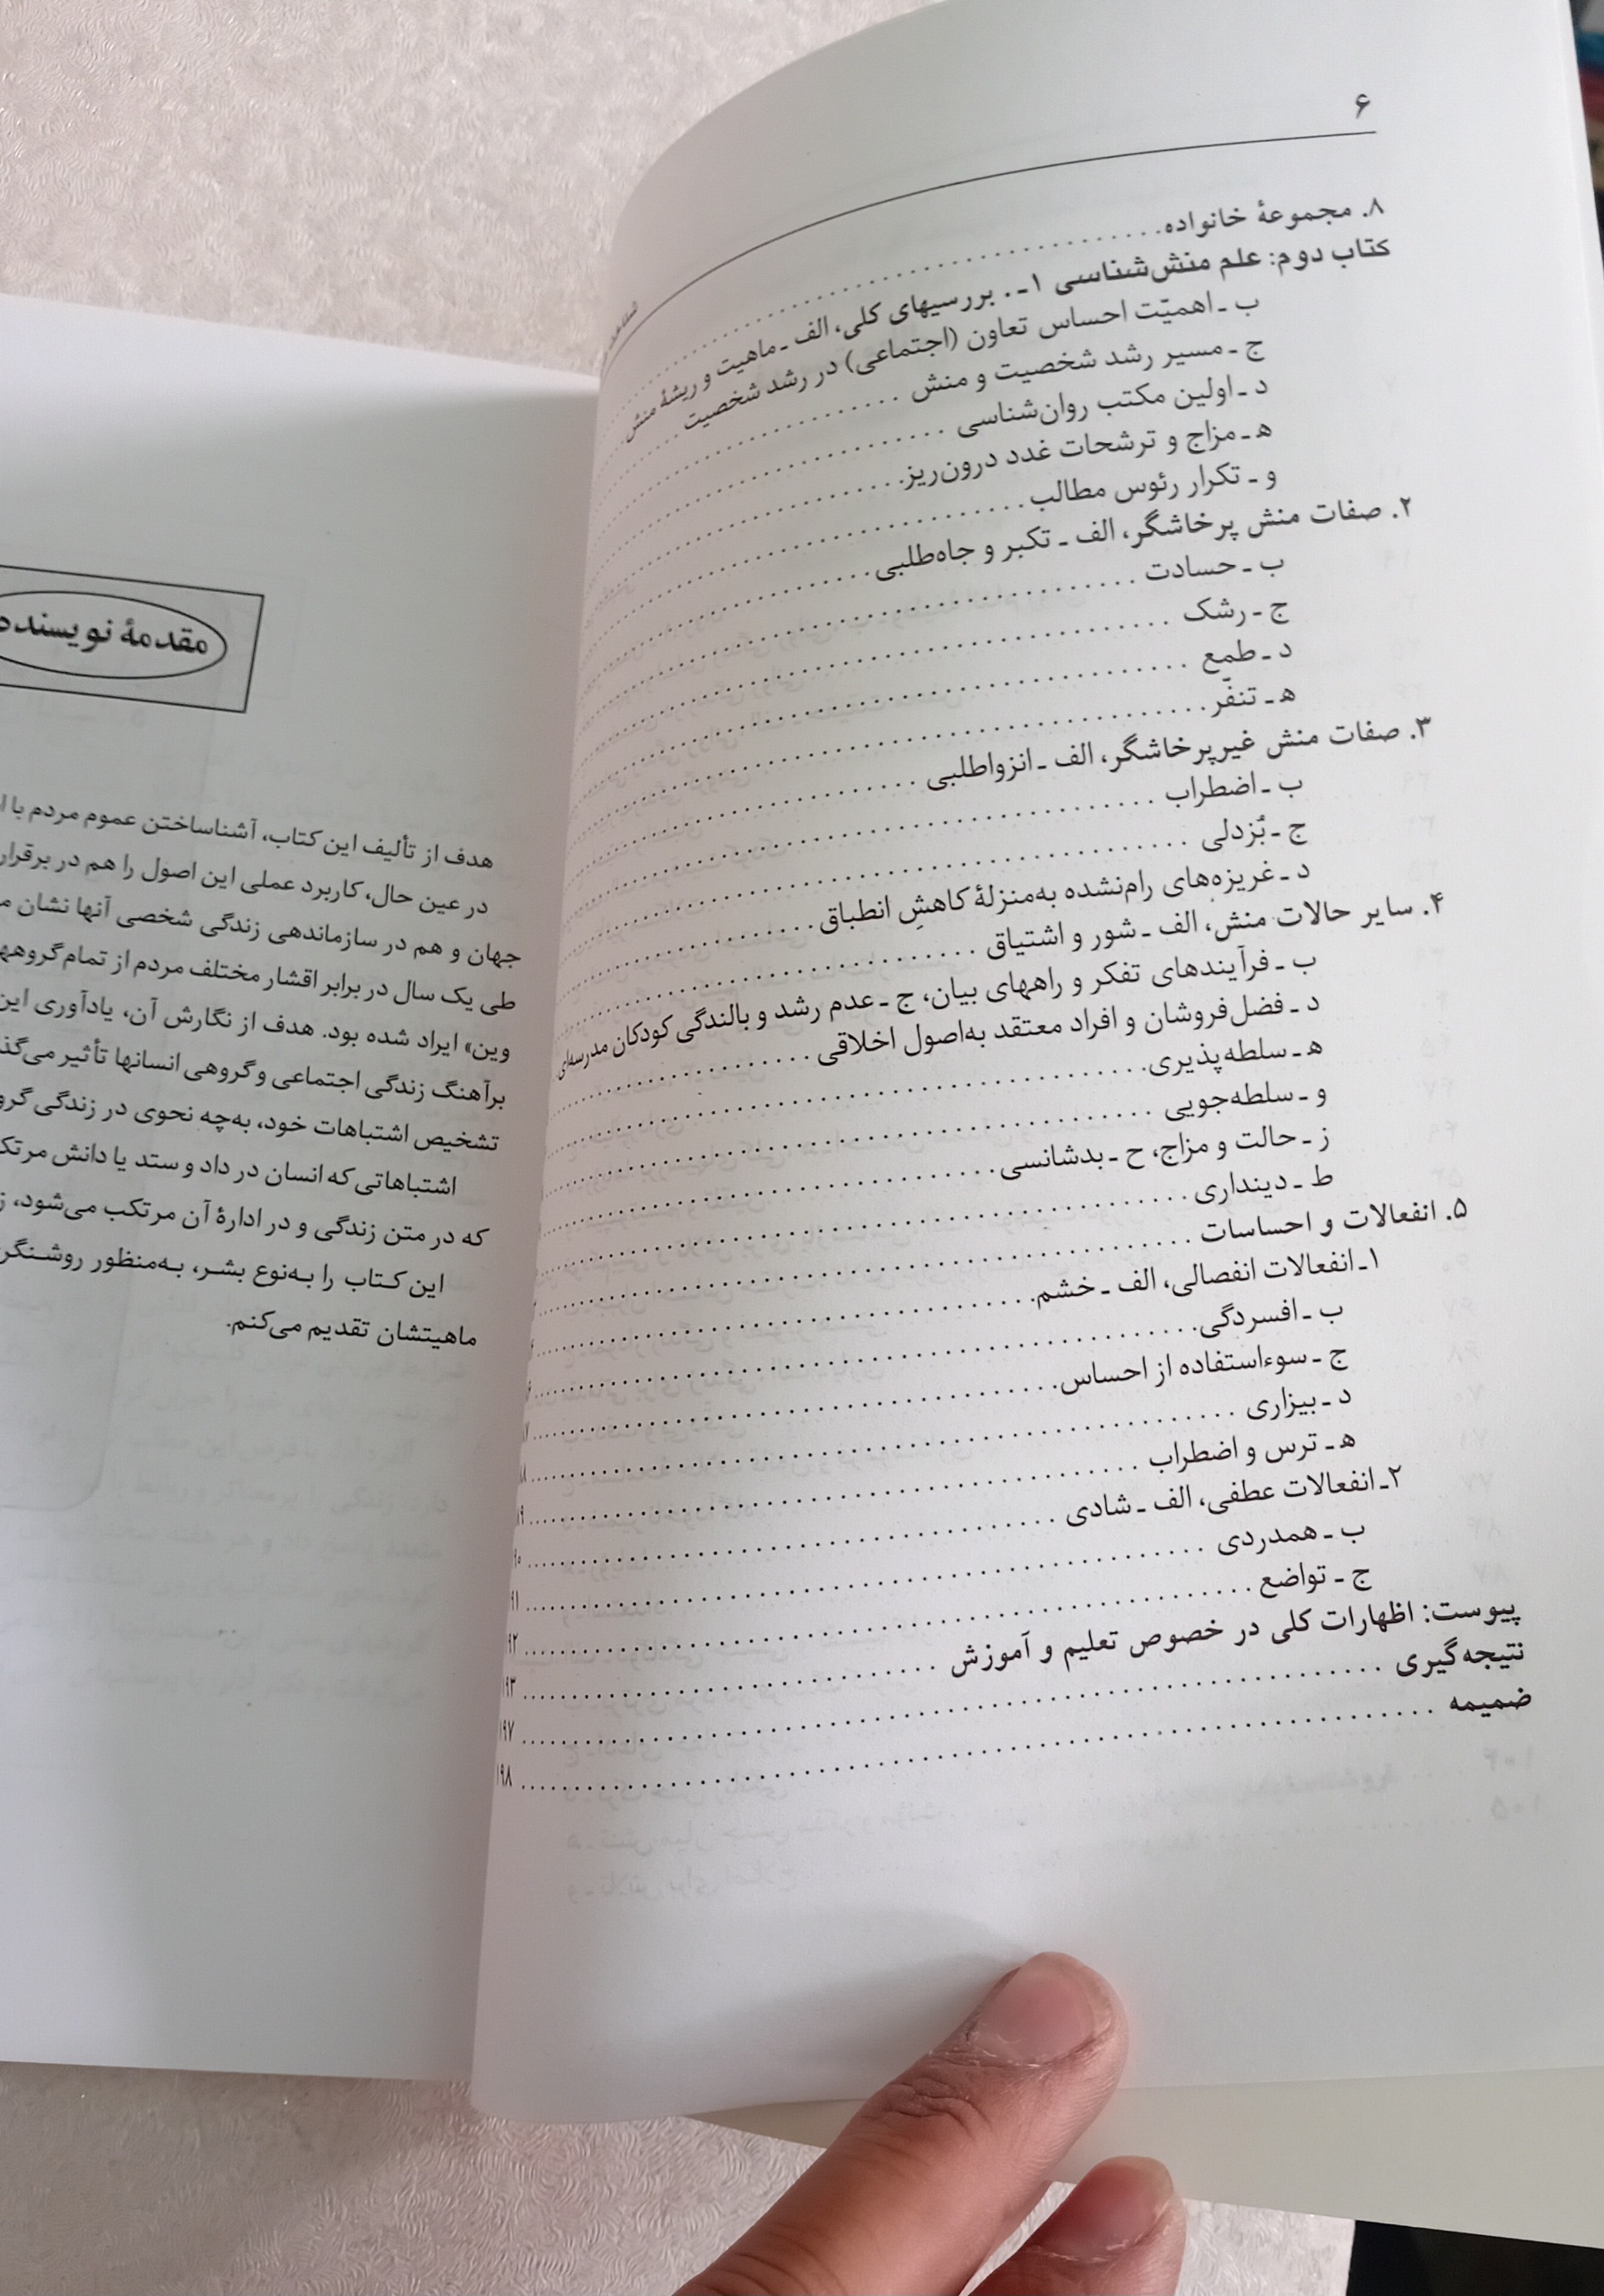 ۶
۸. مجموعهٔ خانواده
کتاب دوم: علم منش‌شناسی ۱ـ. بررسیهای کلی، الف ـ ماهیت و ریشهٔ منش
ب ـ اهمیّت احساس تعاون (اجتماعی) در رشد شخصیت
ج ـ مسیر رشد شخصیت و منش
د ـ اولین مکتب روان‌شناسی
ه‍ ـ مزاج و ترشحات غدد درون‌ریز
و ـ تکرار رئوس مطالب
۲. صفات منش پرخاشگر، الف ـ تکبر و جاه‌طلبی
ب ـ حسادت
ج ـ رشک
د ـ طمع
ه‍ ـ تنفّر
۳. صفات منش غیرپرخاشگر، الف ـ انزواطلبی
ب ـ اضطراب
ج ـ بُزدلی
د ـ غریزه‌های رام‌نشده به‌منزلهٔ کاهشِ انطباق
۴. سایر حالات منش، الف ـ شور و اشتیاق
ب ـ فرآیندهای تفکر و راههای بیان، ج ـ عدم رشد و بالندگی کودکان مدرسه‌ای
د ـ فضل‌فروشان و افراد معتقد به‌اصول اخلاقی
ه‍ ـ سلطه‌پذیری
و ـ سلطه‌جویی
ز ـ حالت و مزاج، ح ـ بدشانسی
ط ـ دینداری
۵. انفعالات و احساسات
۱ـ انفعالات انفصالی، الف ـ خشم
ب ـ افسردگی
ج ـ سوءاستفاده از احساس
د ـ بیزاری
ه‍ ـ ترس و اضطراب
۲ـ انفعالات عطفی، الف ـ شادی
ب ـ همدردی
ج ـ تواضع
پیوست: اظهارات کلی در خصوص تعلیم و آموزش ۱۹۳
نتیجه‌گیری ۱۹۷
ضمیمه ۱۹۸
مقدمهٔ نویسنده
هدف از تألیف این کتاب، آشناساختن عموم مردم با
در عین حال، کاربرد عملی این اصول را هم در برقرار
جهان و هم در سازماندهی زندگی شخصی آنها نشان
طی یک سال در برابر اقشار مختلف مردم از تمام گروهه
وین» ایراد شده بود. هدف از نگارش آن، یادآوری این
برآهنگ زندگی اجتماعی و گروهی انسانها تأثیر می‌گذ
تشخیص اشتباهات خود، به‌چه نحوی در زندگی گرو
اشتباهاتی که انسان در داد و ستد یا دانش مرتک
که در متن زندگی و در ادارهٔ آن مرتکب می‌شود،
این کـتاب را بـه‌نوع بشـر، بـه‌منظور روشـنگر
ماهیتشان تقدیم می‌کنم.